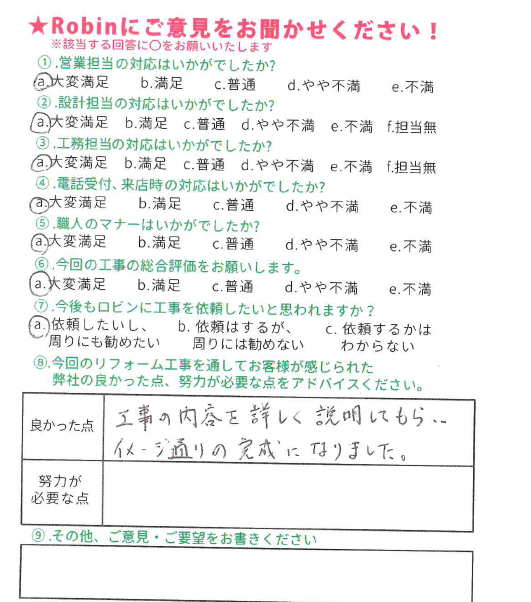 ★Robinにご意見をお聞かせください！
※該当する回答に〇をお願いいたします
①.営業担当の対応はいかがでしたか?
a.大変満足 b.満足 c.普通 d.やや不満 e.不満
②.設計担当の対応はいかがでしたか?
a.大変満足 b.満足 c.普通 d.やや不満 e.不満 f.担当無
③.工務担当の対応はいかがでしたか?
a.大変満足 b.満足 c.普通 d.やや不満 e.不満 f.担当無
④.電話受付、来店時の対応はいかがでしたか?
a.大変満足 b.満足 c.普通 d.やや不満 e.不満
⑤.職人のマナーはいかがでしたか?
a.大変満足 b.満足 c.普通 d.やや不満 e.不満
⑥.今回の工事の総合評価をお願いします。
a.大変満足 b.満足 c.普通 d.やや不満 e.不満
⑦.今後もロビンに工事を依頼したいと思われますか？
a. 依頼したいし、 b. 依頼はするが、 c. 依頼するかは
周りにも勧めたい 周りには勧めない わからない
⑧.今回のリフォーム工事を通してお客様が感じられた
弊社の良かった点、努力が必要な点をアドバイスください。
良かった点
工事の内容を詳しく説明してもらい
イメージ通りの完成になりました。
努力が
必要な点
⑨.その他、ご意見・ご要望をお書きください